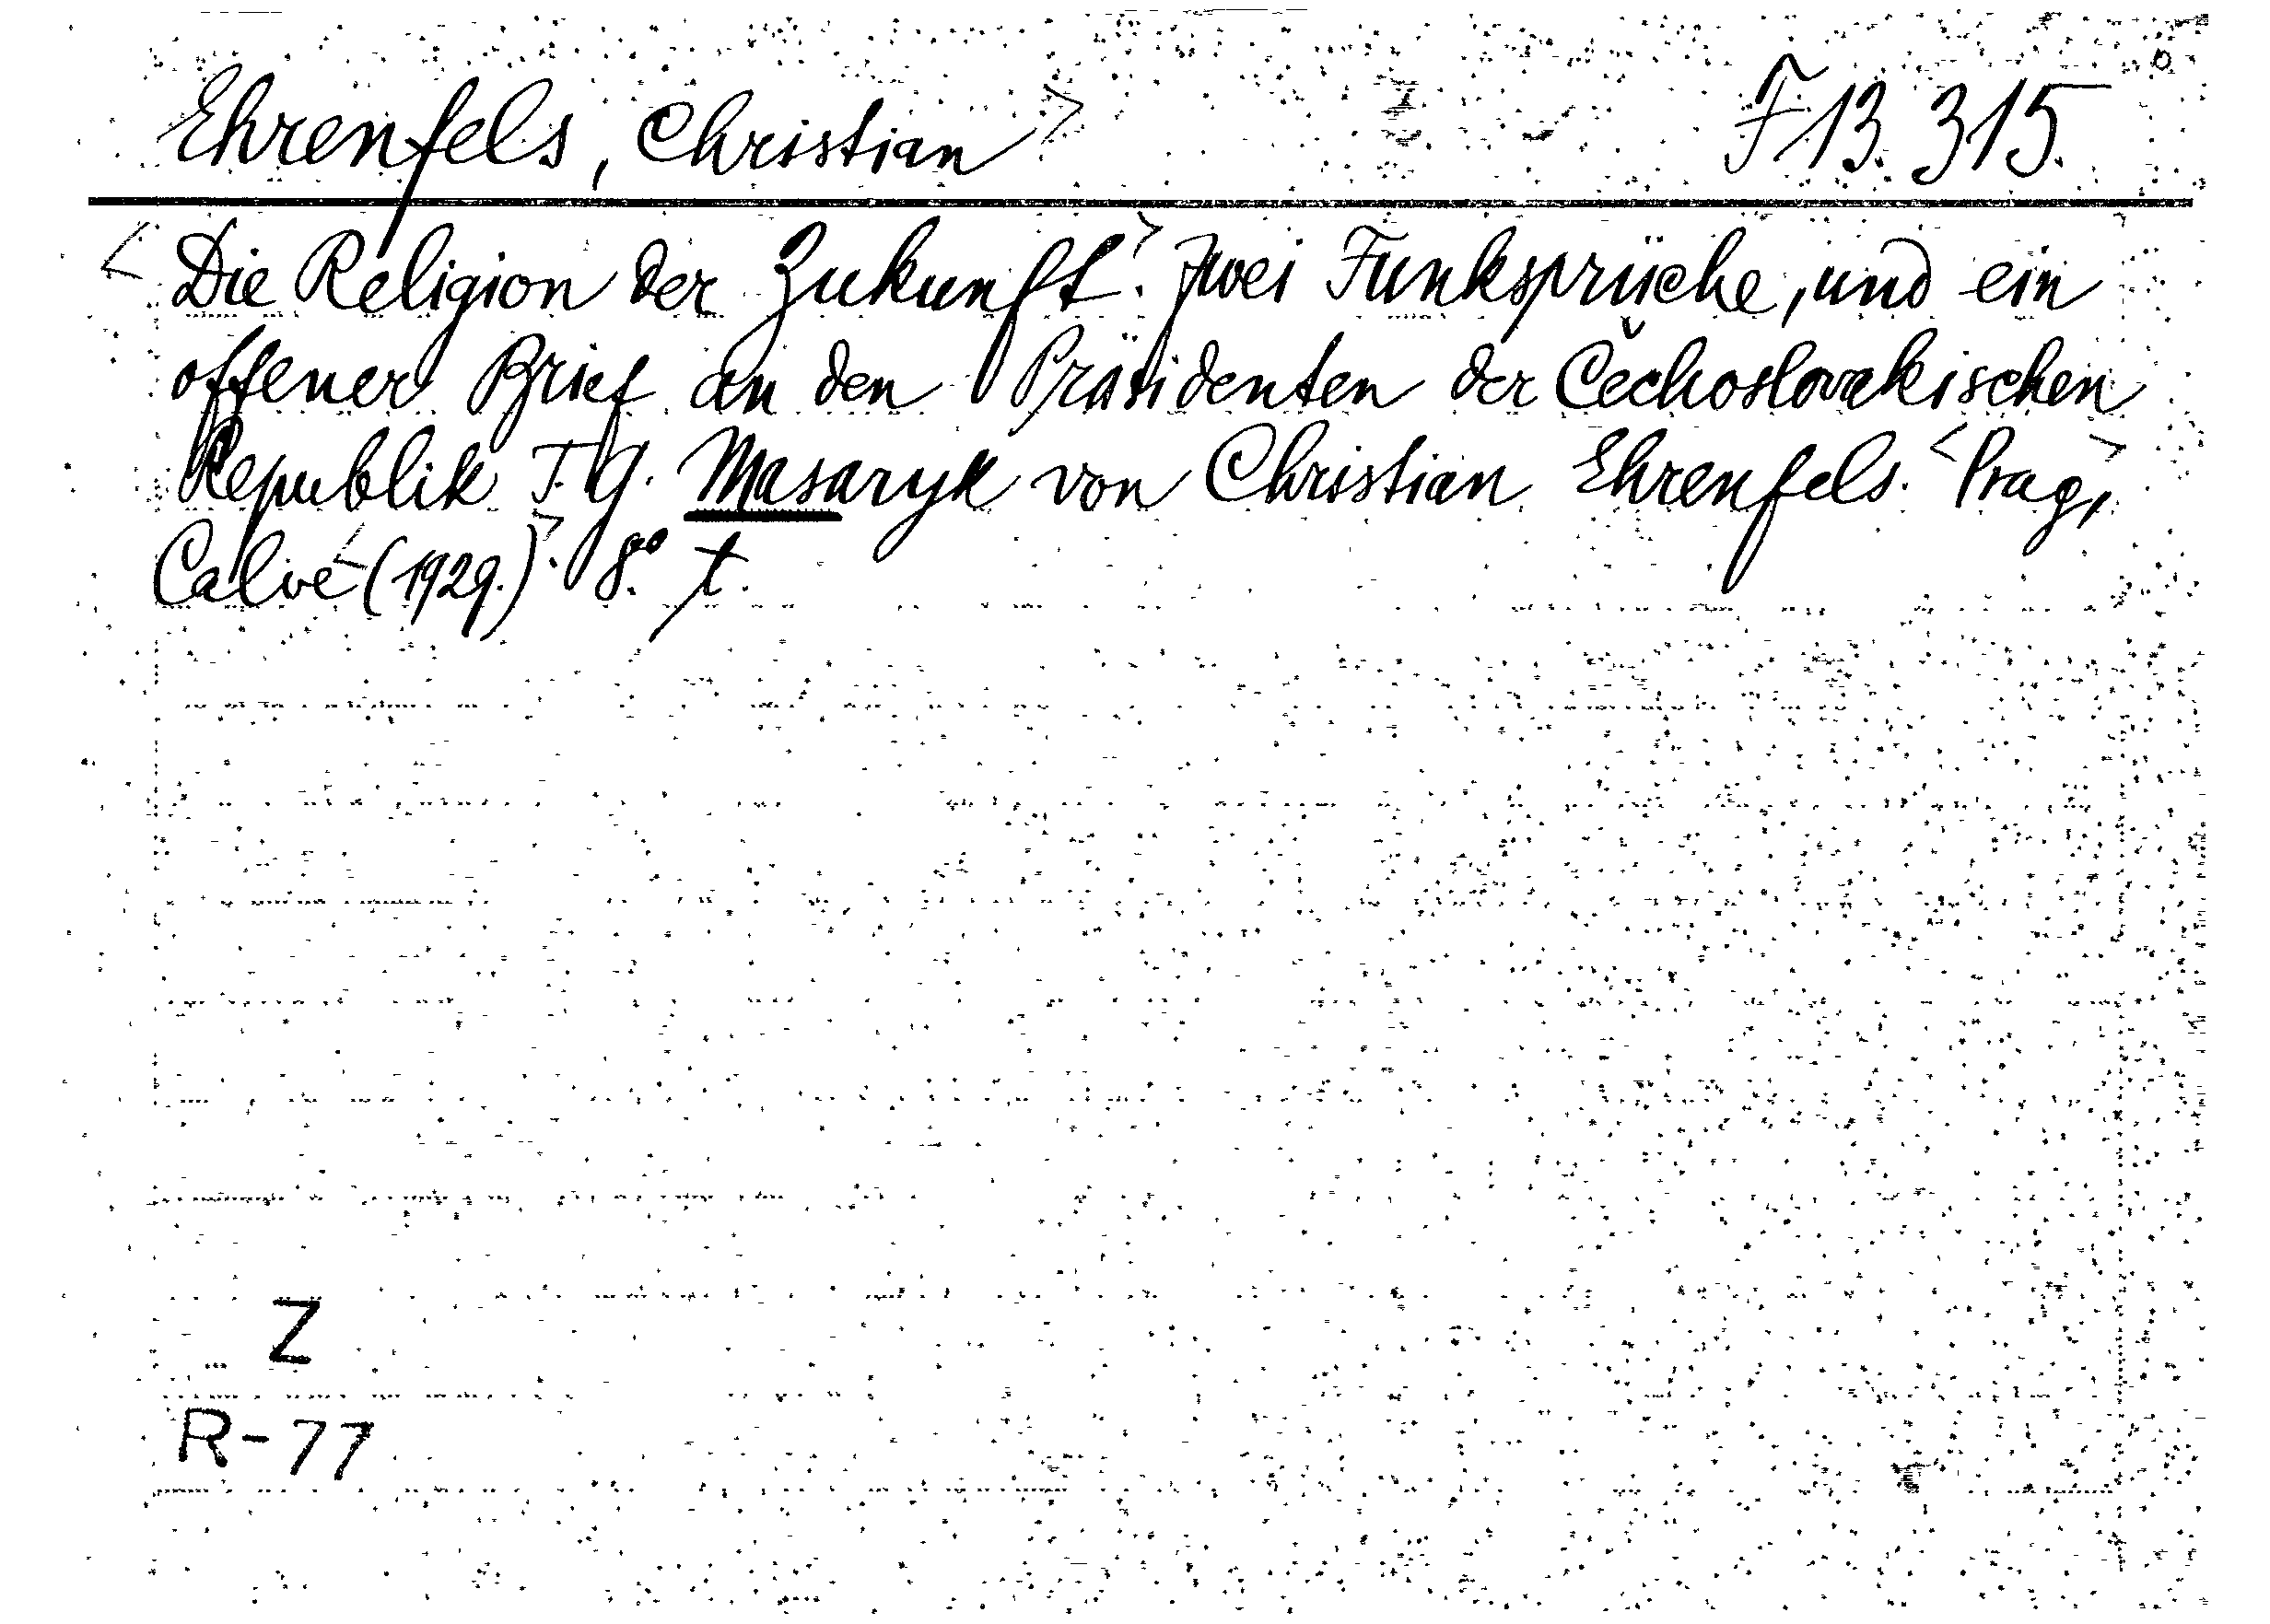 Ehrenfels, Christian> F 13.315.
<Die Religion der Zukunft.> Zwei Funksprüche, und ein
offener Brief an den Präsidenten der Čechoslovakischen
Republik T. G. Masaryk von Christian Ehrenfels. <Prag,>
Calve <(1929.)>. 8.° t.
Z
R-77